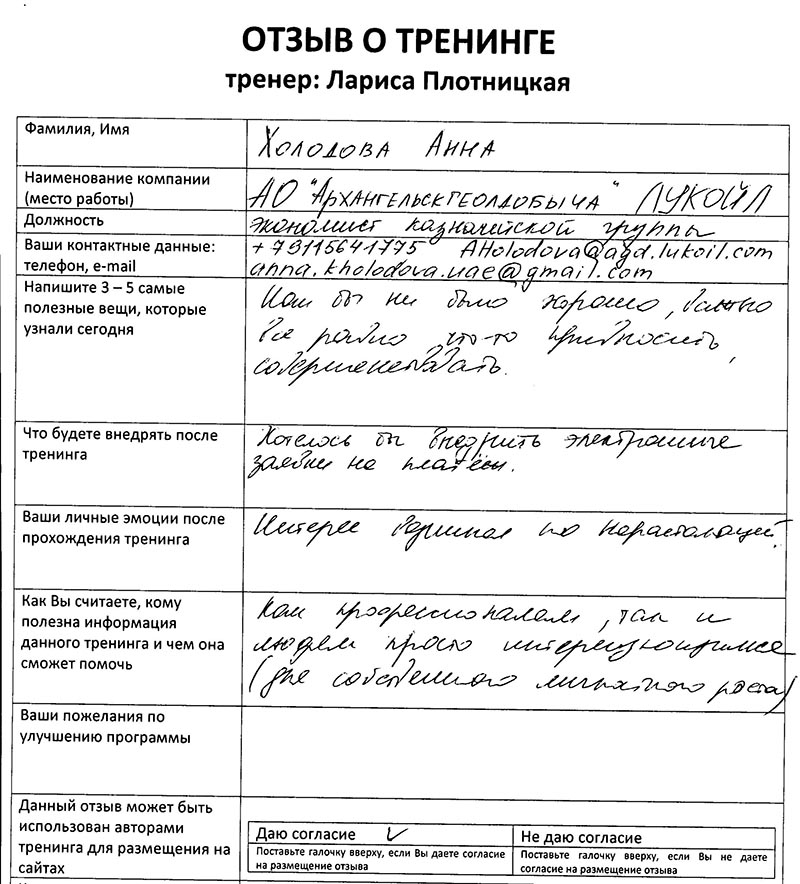 ОТЗЫВ О ТРЕНИНГЕ
тренер: Лариса Плотницкая
Фамилия, Имя
Холодова Анна
Наименование компании
(место работы)
АО "Архангельскгеолдобыча" ЛУКОЙЛ
Должность
экономист казначейской группы
Ваши контактные данные:
телефон, e-mail
+79115641775 AHolodova@agd.lukoil.com
anna.kholodova.uae@gmail.com
Напишите 3 – 5 самые
полезные вещи, которые
узнали сегодня
Как бы ни было хорошо, можно
все равно что-то привносить,
совершенствовать.
Что будете внедрять после
тренинга
Хотелось бы внедрить электронные
заявки на платежи.
Ваши личные эмоции после
прохождения тренинга
Интерес по нарастающей.
Как Вы считаете, кому
полезна информация
данного тренинга и чем она
сможет помочь
Как профессионалам, так и
людям просто интересующимся
(для собственного личностного роста)
Ваши пожелания по
улучшению программы
Данный отзыв может быть
использован авторами
тренинга для размещения на
сайтах
Даю согласие ✓
Поставьте галочку вверху, если Вы даете согласие
на размещение отзыва
Не даю согласие
Поставьте галочку вверху, если Вы не даете
согласие на размещение отзыва